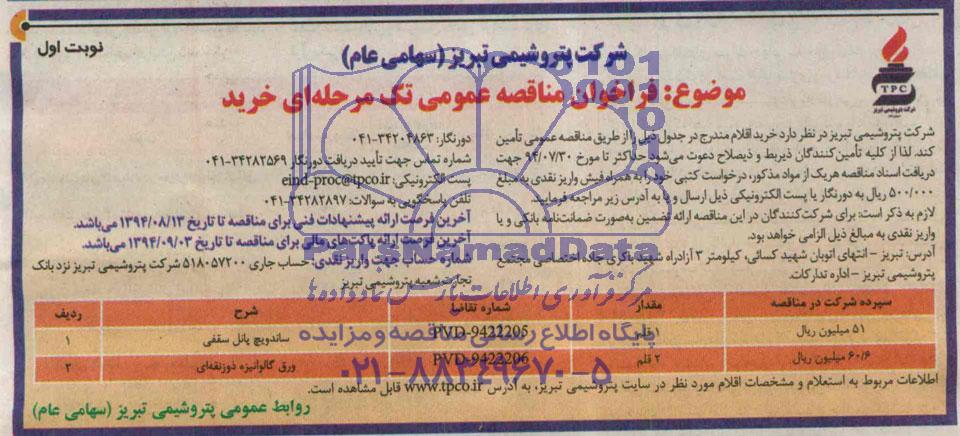 نوبت اول
شرکت پتروشیمی تبریز (سهامی عام)
موضوع: فراخوان مناقصه عمومی تک مرحله‌ای خرید
TPC
شرکت پتروشیمی تبریز
شرکت پتروشیمی تبریز در نظر دارد خرید اقلام مندرج در جدول ذیل را از طریق مناقصه عمومی تأمین
کند. لذا از کلیه تأمین کنندگان ذیربط و ذیصلاح دعوت می‌شود حداکثر تا مورخ ۹۴/۰۷/۳۰ جهت
دریافت اسناد مناقصه هریک از مواد مذکور، درخواست کتبی خود را به همراه فیش واریز نقدی به مبلغ
۵۰۰/۰۰۰ ریال به دورنگار یا پست الکترونیکی ذیل ارسال و یا به آدرس زیر مراجعه فرمایند.
لازم به ذکر است: برای شرکت‌کنندگان در این مناقصه ارائه تضمین به‌صورت ضمانت‌نامه بانکی و یا
واریز نقدی به مبالغ ذیل الزامی خواهد بود.
آدرس: تبریز - انتهای اتوبان شهید کسائی، کیلومتر ۳ آزادراه شهید باکری جاده اختصاصی مجتمع
پتروشیمی تبریز - اداره تدارکات.
دورنگار: ۳۴۲۰۴۸۶۳-۰۴۱
شماره تماس جهت تأیید دریافت دورنگار ۳۴۲۸۲۵۶۹-۰۴۱
پست الکترونیکی: eind-proc@tpco.ir
تلفن پاسخگویی به سوالات: ۳۴۲۸۲۸۹۷-۰۴۱
آخرین فرصت ارائه پیشنهادات فنی برای مناقصه تا تاریخ ۱۳۹۴/۰۸/۱۳ می‌باشد.
آخرین فرصت ارائه پاکت‌های مالی برای مناقصه تا تاریخ ۱۳۹۴/۰۹/۰۳ می‌باشد.
شماره حساب جهت واریز نقدی: حساب جاری ۵۱۸۰۵۷۲۰۰ شرکت پتروشیمی تبریز نزد بانک
تجارت شعبه پتروشیمی تبریز
ردیف شرح شماره تقاضا مقدار سپرده شرکت در مناقصه
۱ ساندویچ پانل سقفی PVD-9422205 ۱ قلم ۵۱ میلیون ریال
۲ ورق گالوانیزه ذوزنقه‌ای PVD-9422206 ۲ قلم ۶۰/۶ میلیون ریال
اطلاعات مربوط به استعلام و مشخصات اقلام مورد نظر در سایت پتروشیمی تبریز، به آدرس www.tpco.ir قابل مشاهده است.
روابط عمومی پتروشیمی تبریز (سهامی عام)
ParsNamadData
مرکز فرآوری اطلاعات پارس نماد داده‌ها
پایگاه اطلاع رسانی مناقصه و مزایده
۰۲۱-۸۸۳۴۹۶۷۰-۵